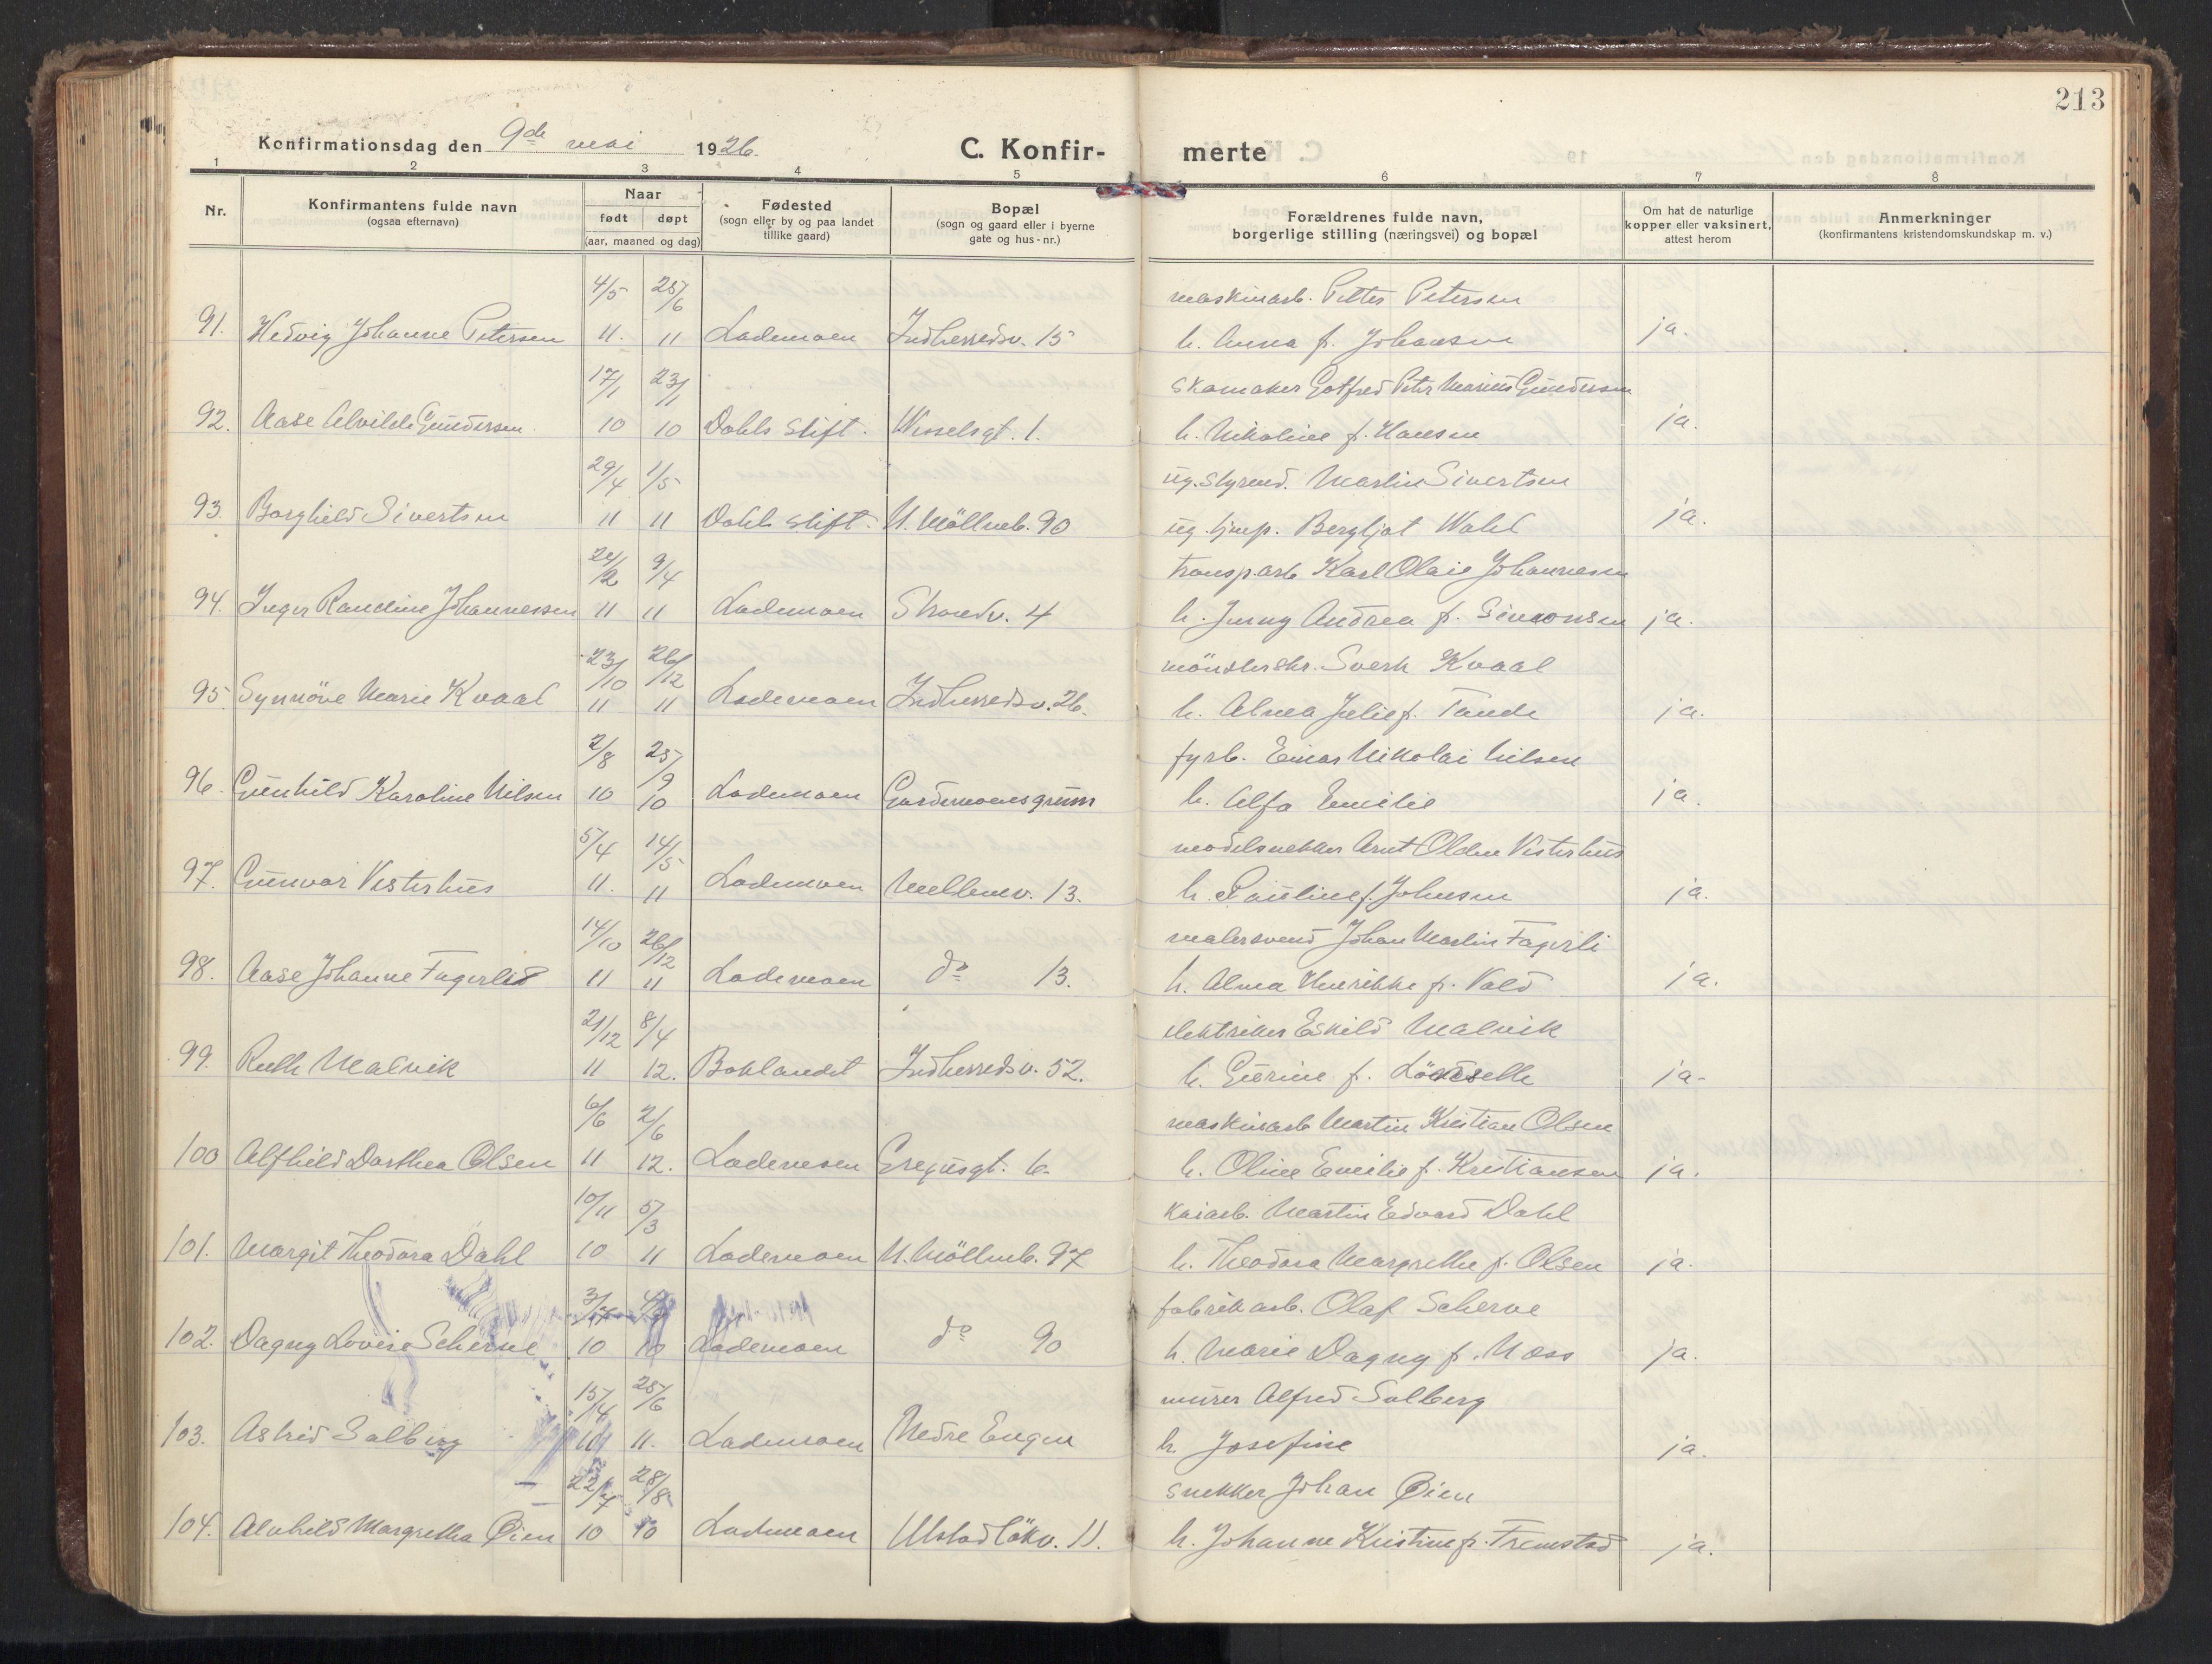 213
Konfirmationsdag den 9de mai 1926.
C. Konfirmerte
1 2 3 4 5 6 7 8
Nr.
Konfirmantens fulde navn
(ogsaa efternavn)
Naar
født døpt
(aar, maaned og dag)
Fødested
(sogn eller by og paa landet
tillike gaard)
Bopæl
(sogn og gaard eller i byerne
gate og hus-nr.)
Forældrenes fulde navn,
borgerlige stilling (næringsvei) og bopæl
Om hat de naturlige
kopper eller vaksinert,
attest herom
Anmerkninger
(konfirmantens kristendomskundskap m. v.)
4/5 25/6 maskinarb. Petter Petersen
91. Hedvig Johanne Petersen 11. 11 Lademoen Indherredsv. 15 h. Anna f. Johansen ja.
17/1 23/1 Skomaker Gotfred Peter Marius Gundersen
92. Aase Alvilde Gundersen 10 10 Dahls Stift. Wesselsgt. 1. h. Nikoline f. Hansen ja.
29/4 1/5 ug. Styrmd. Martin Sivertsen
93. Borghild Sivertsen 11 11 Dahls Stift. N. Möllenb. 90 ug. tjmp. Bergljot Wahl ja.
24/2 9/4 transp.arb Karl Olaie Johannesen
94. Inger Randine Johannessen 11 11 Lademoen Strandv. 4 h. Jenny Andrea f. Simonsen ja.
23/10 26/12 mönsterskr. Sverk Kvaal
95. Synnöve Marie Kvaal 11 11 Lademoen Indherredsv. 26. h. Alma Julie f. Tande ja.
2/8 25/9 fyrb. Einar Nikolai Nilsen
96. Gunhild Karoline Nilsen 10 10 Lademoen Gardemoensgrunn h. Alfa Emilie ja.
5/4 14/5 modelsnekker Arnt Olden Vesterhus
97. Gunvor Vesterhus 11. 11 Lademoen Mellemv. 13. h. Pauline f. Johnsen ja.
14/10 26/12 malersvend Johan Martin Fagerli
98. Aase Johanne Fagerlid 11 11 Lademoen do 13. h. Alma Henrikke f. Vold ja.
21/12 8/4 elektriker Eskild Malvik
99. Ruth Malvik 11 12. Baklandet Indherredsv. 52. h. Gurine f. ja-
6/6 2/6 maskinarb Martin Kristian Olsen
100 Alfhild Dorthea Olsen 11 12. Lademoen Gregusgt. 6. h. Oline Emilie f. Kristiansen ja.
10/11 5/3 kaiarb. Martin Edvard Dahl
101. Margit Theodora Dahl 10 11 Lademoen N. Möllenb. 97 h. Theodora Margrethe f. Olsen ja.
fabrikarb. Olaf Scherve
102. Dagny Lovise Scherve 10 10 Lademoen do 90 h. Marie Dagny f. Moss ja.
15/4 25/6 murer Alfred Solberg
103. Astrid Solberg 11 11. Lademoen Nedre Engen h. Josefine ja.
22/7 28/8 snekker Johan Øien
104. Alvhild Margretha Øien 10 10 Lademoen Ulstadlökv. 11. h. Johanne Kristine f. Fremstad ja.